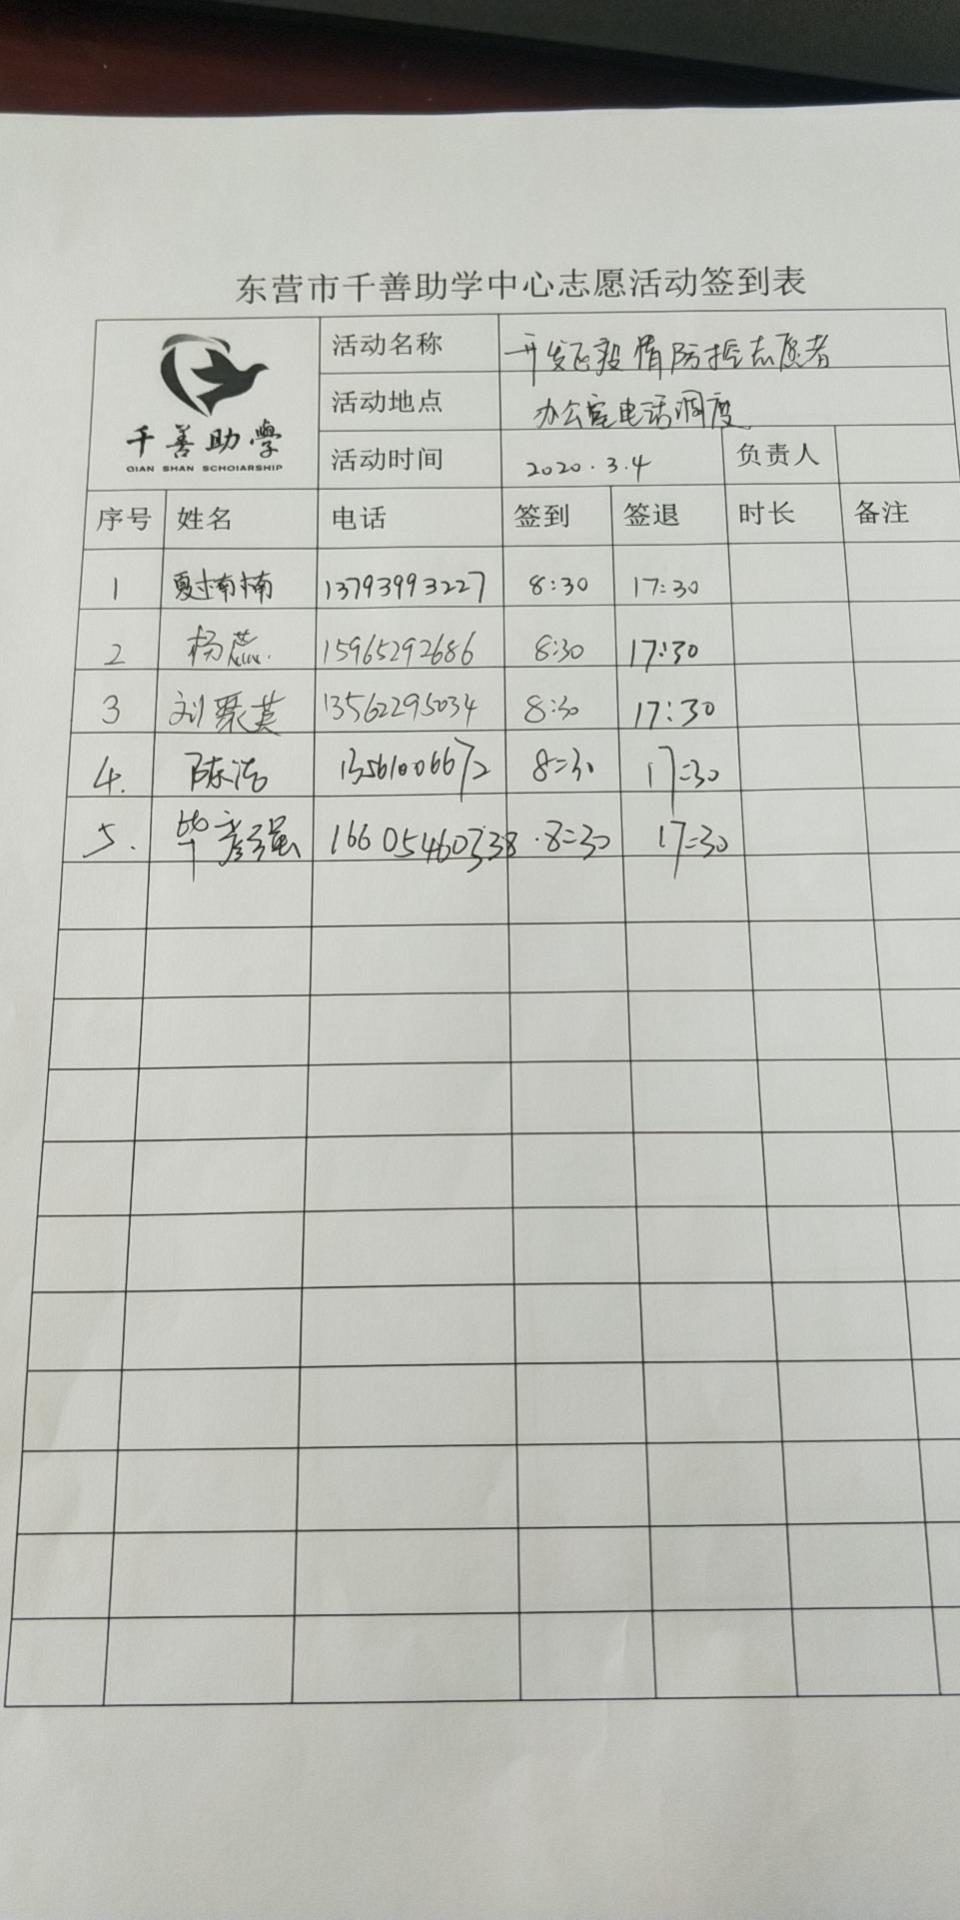 东营市千善助学中心志愿活动签到表
千善助學
QIAN SHAN SCHOlARSHIP
活动名称 开发区疫情防控志愿者
活动地点 办公室电话调度
活动时间 2020.3.4 负责人
序号 姓名 电话 签到 签退 时长 备注
1 夏楠楠 13793993227 8:30 17:30
2 杨蕊. 15965292686 8:30 17:30
3 刘翠英 13562295034 8:30 17:30
4. 陈洁 13561006672 8:30 17:30
5. 毕彦强 16605460338 8:30 17:30